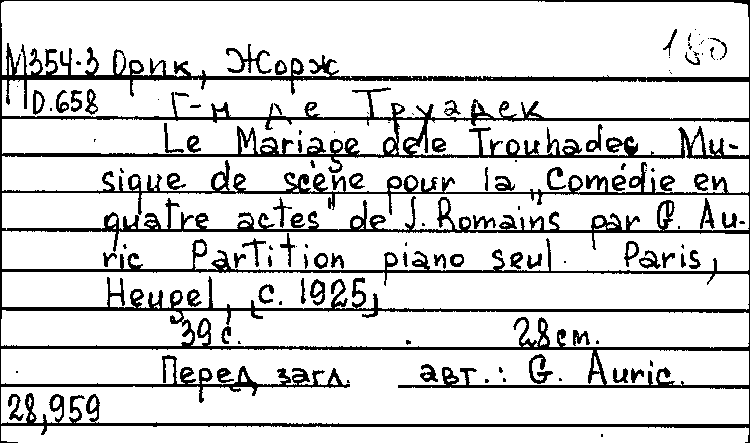 180
М354-3 Орик, Жорж
D.658 Г-н де Труадек
Le Mariage de le Trouhadec. Mu-
sique de scène pour la „Comédie en
quatre actes" de J. Romains par G. Au-
ric Partition piano seul. Paris,
Heugel, [c. 1925]
39 с. 28 cm.
Перед загл. авт.: G. Auric.
28,959